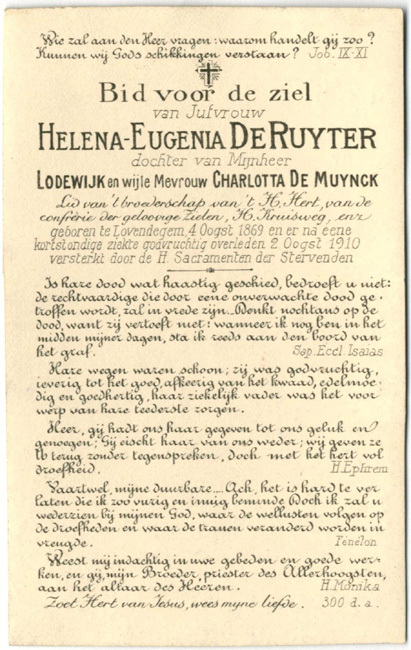 Wie zal aan den Heer vragen: waarom handelt gij zoo?
Kunnen wij Gods schikkingen verstaan? Job. IX-XI
Bid voor de ziel
van Jufvrouw
HELENA-EUGENIA DERUYTER
dochter van Mijnheer
LODEWIJK en wijle Mevrouw CHARLOTTA DE MUYNCK
Lid van 't broederschap van 't H. Hert, van de
confrérie der geloovige Zielen, H. Kruisweg, enz
geboren te Lovendegem, 4 Oogst 1869 en er na eene
kortstondige ziekte godvruchtig overleden 2 Oogst 1910
versterkt door de H. Sacramenten der Stervenden
Is hare dood wat haastig geschied, bedroeft u niet:
de rechtvaardige die door eene onverwachte dood ge-
troffen wordt, zal in vrede zijn... Denkt nochtans op de
dood, want zij vertoeft niet: wanneer ik nog ben in het
midden mijner dagen, sta ik reeds aan den boord van
het graf. Sap. Eccl. Isaias
Hare wegen waren schoon; zij was godvruchtig,
ieverig tot het goed, afkeerig van het kwaad, edelmoe-
dig en goedhertig, haar ziekelijk vader was het voor
werp van hare teederste zorgen.
Heer, gij hadt ons haar gegeven tot ons geluk en
genoegen; Gij eischt haar van ons weder; wij geven ze
U terug zonder tegenspreken, doch met het hert vol
droefheid. H. Ephrem
Vaartwel, mijne duurbare.... Ach, het is hard te ver-
laten die ik zoo vurig en innig beminde Doch ik zal u
wederzien bij mijnen God, waar de wellusten volgen op
de droefheden en waar de tranen veranderd worden in
vreugde. Fénelon
Weest mij indachtig in uwe gebeden en goede wer-
ken, en gij, mijn Broeder, priester des Allerhoogsten,
aan het altaar des Heeren. H. Monika
Zoet Hert van Jesus, wees mijne liefde. 300 d. a.